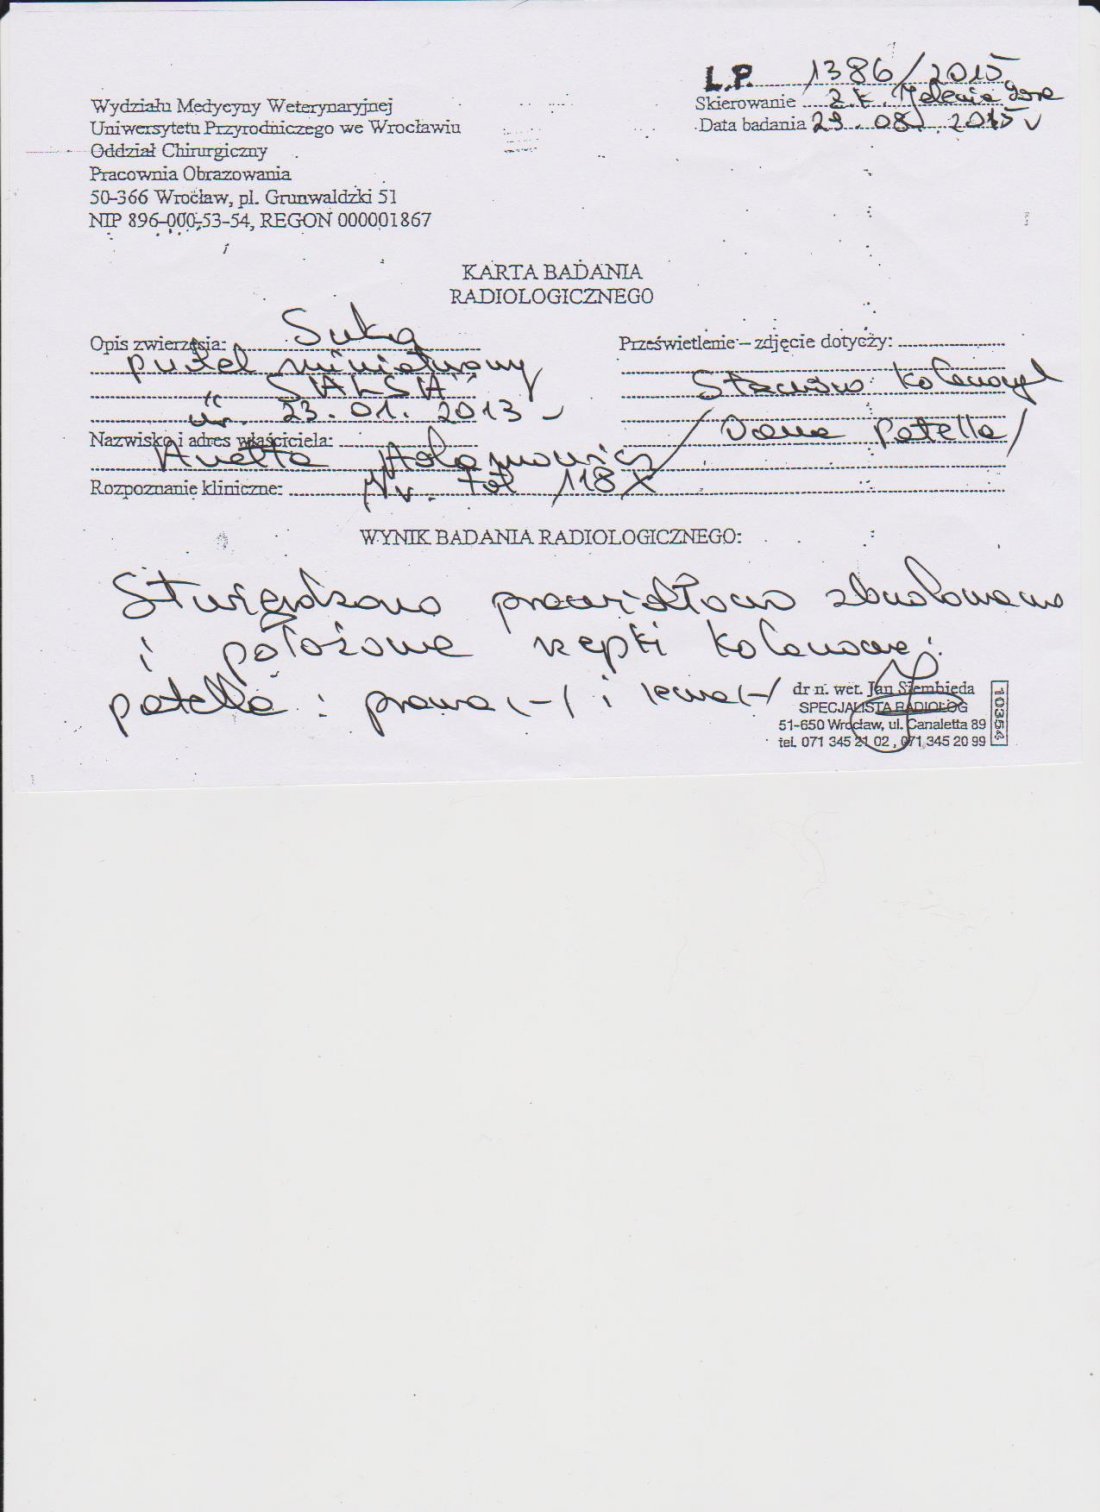 L.P. 1386/2015
Skierowanie Z.K. Jelenia Góra
Data badania 29.08.2015
Wydziału Medycyny Weterynaryjnej
Uniwersytetu Przyrodniczego we Wrocławiu
Oddział Chirurgiczny
Pracownia Obrazowania
50-366 Wrocław, pl. Grunwaldzki 51
NIP 896-000-53-54, REGON 000001867
KARTA BADANIA
RADIOLOGICZNEGO
Opis zwierzęcia: Suka
pudel miniaturowy
"SALSA"
ur. 23.01.2013
Nazwisko i adres właściciela:
Anetta Adamowicz
Rozpoznanie kliniczne: Nr. tat 118X
Prześwietlenie – zdjęcie dotyczy:
Stawów kolanowych
/ Patella /
WYNIK BADANIA RADIOLOGICZNEGO:
Stwierdzono prawidłowo zbudowane
i położone rzepki kolanowe:
patella: prawa (-) i lewa (-)
dr n. wet. Jan Siembieda
SPECJALISTA RADIOLOG
51-650 Wrocław, ul. Canaletta 89
tel. 071 345 21 02, 071 345 20 99
10354